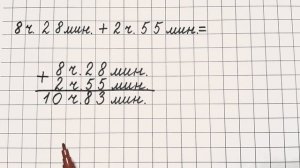 8 ч. 28 мин. + 2 ч. 55 мин. =
+ 8 ч. 28 мин.
2 ч. 55 мин.
10 ч. 83 мин.